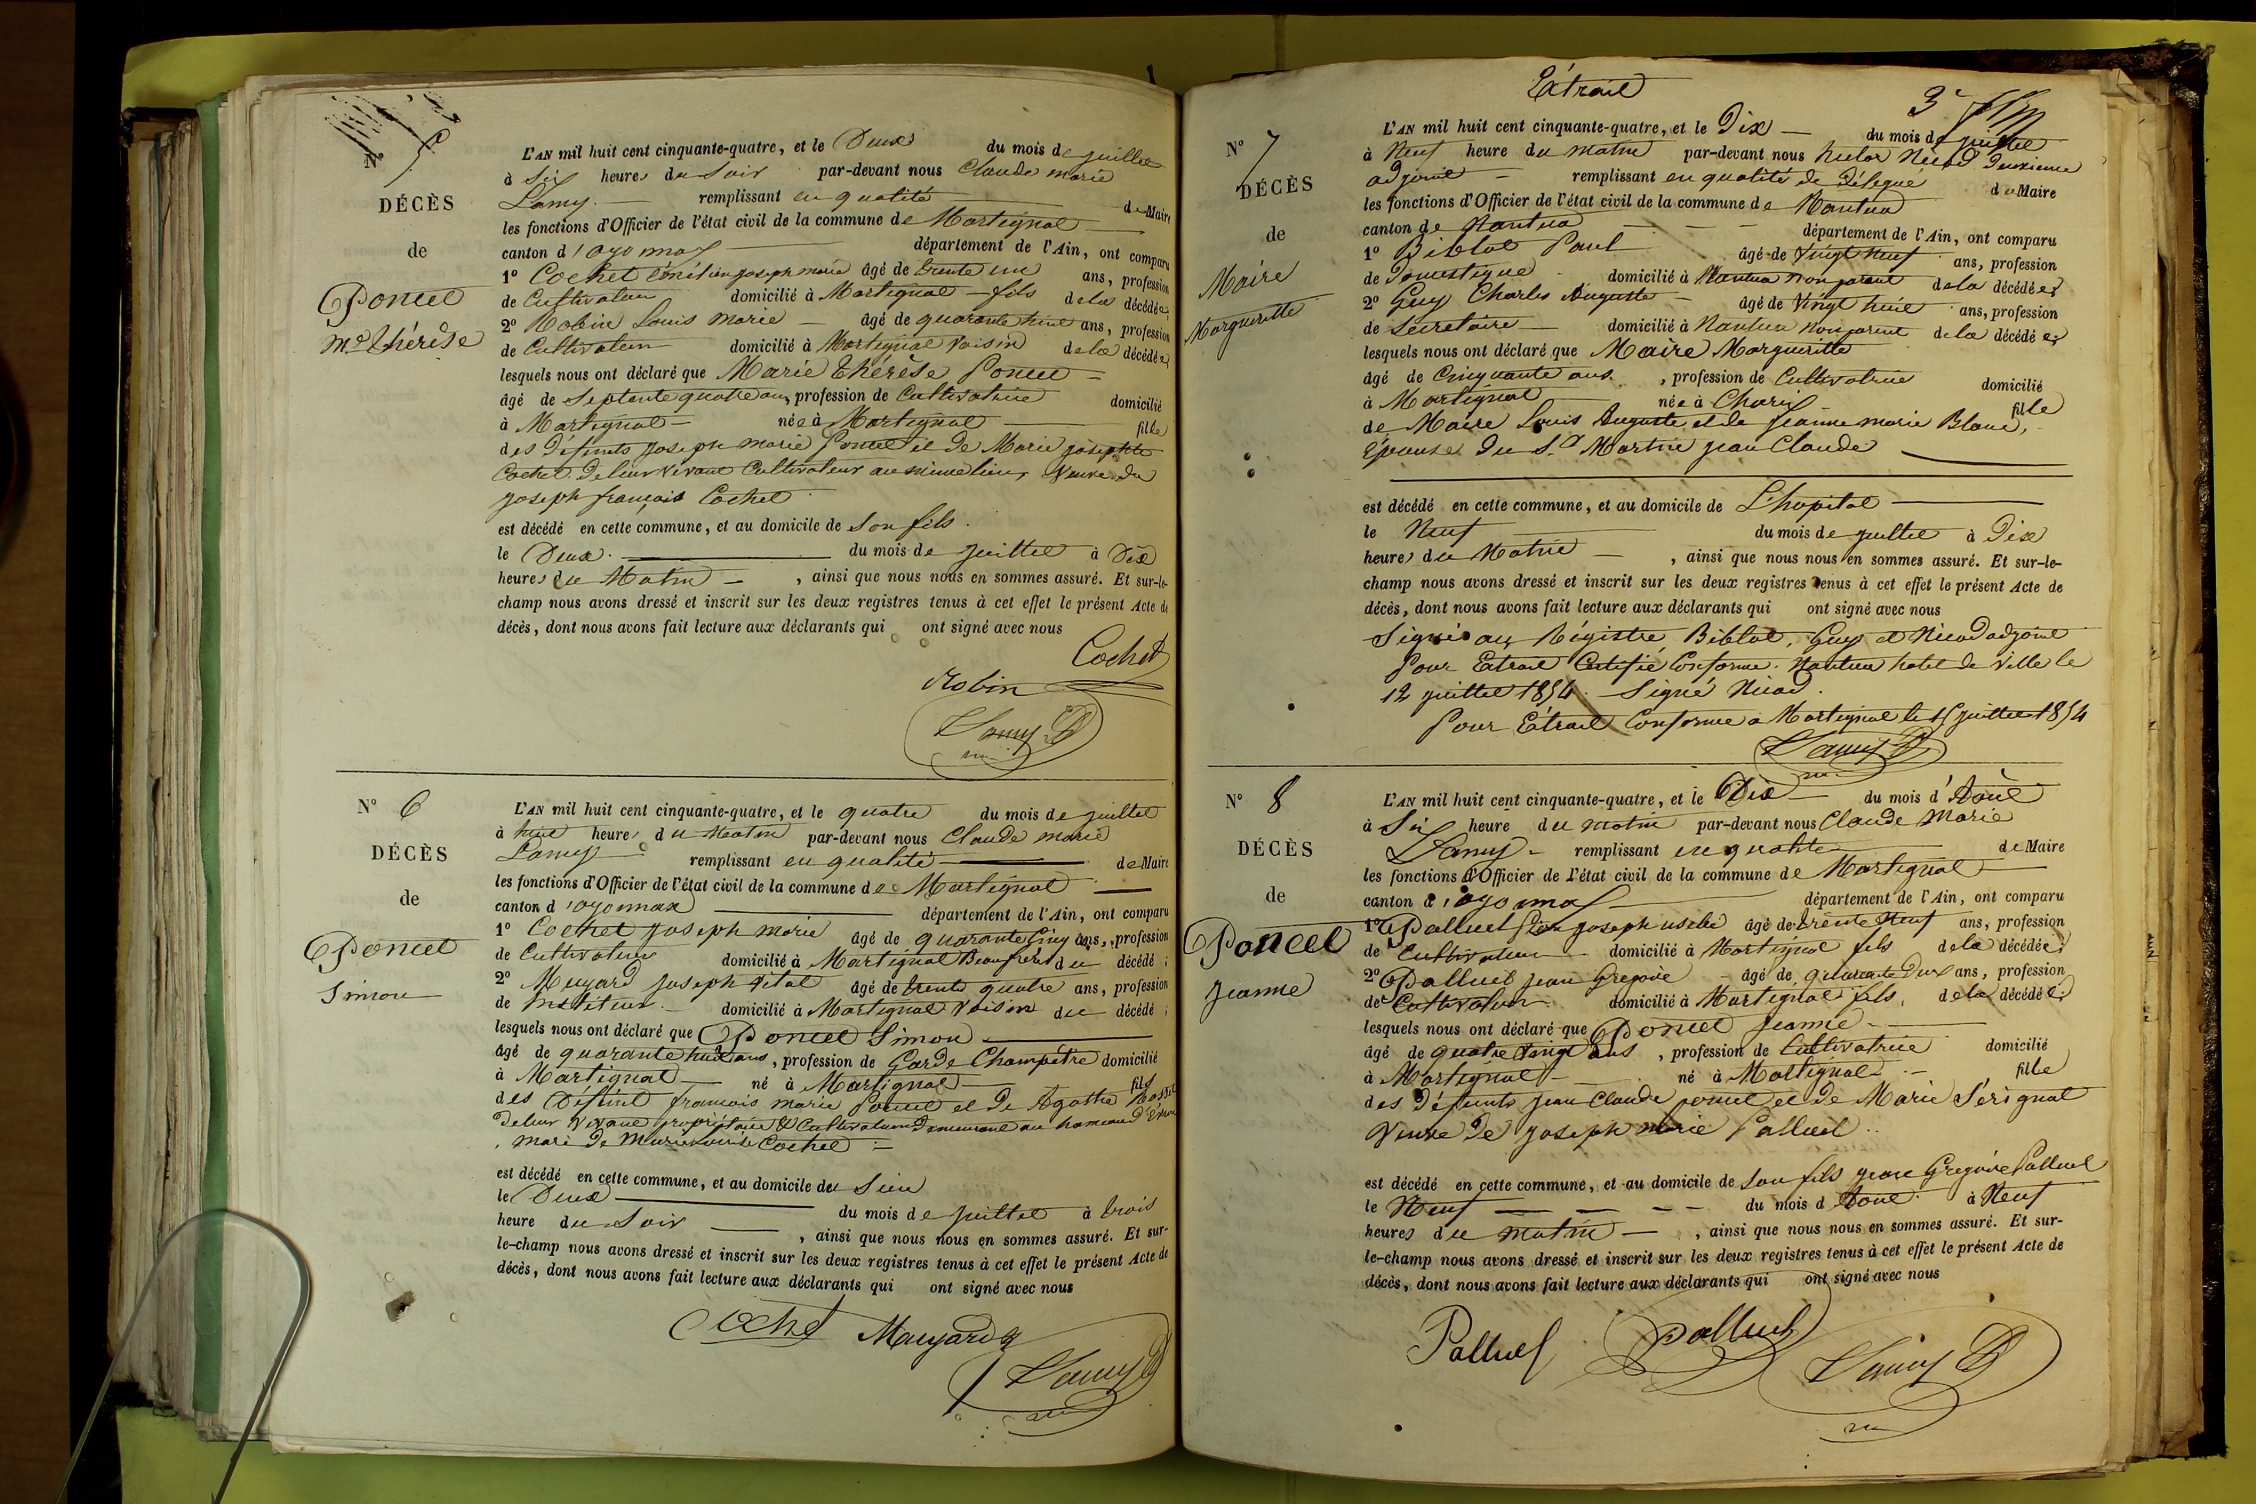 N° 5
DÉCÈS
de
Poncet
Mie Thérèse
L'AN mil huit cent cinquante-quatre, et le Deux du mois de juillet
à Six heures du Soir par-devant nous Claude marie
Lamy remplissant en qualité de Maire
les fonctions d'Officier de l'état civil de la commune de Martignat
canton d'oyonnax département de l'Ain, ont comparu
1° Cochet joseph marie âgé de trente un ans, profession
de Cultivateur domicilié à Martignat fils de la décédée;
2° Robin Louis Marie âgé de quarante huit ans, profession
de Cultivateur domicilié à Martignat Voisin de la décédée,
lesquels nous ont déclaré que Marie Thérèse Poncet
âgé de Septente quatre ans, profession de Cultivatrice domicilié
à Martignat née à Martignat fille
des Défunts joseph marie Poncet et de Marie josephte
Cochet De leur Vivant Cultivateur au même lieu, Veuve de
joseph françois Cochet
est décédé en cette commune, et au domicile de Son fils.
le Deux du mois de juillet à Dix
heures du Matin, ainsi que nous nous en sommes assuré. Et sur-le-
champ nous avons dressé et inscrit sur les deux registres tenus à cet effet le présent Acte de
décès, dont nous avons fait lecture aux déclarants qui ont signé avec nous
Cochet
Robin
Lamy
N° 6
DÉCÈS
de
Poncet
Simon
L'AN mil huit cent cinquante-quatre, et le quatre du mois de juillet
à huit heures du Matin par-devant nous Claude marie
Lamy remplissant en qualité de Maire
les fonctions d'Officier de l'état civil de la commune de Martignat
canton d'oyonnax département de l'Ain, ont comparu
1° Cochet joseph marie âgé de quarante Cinq ans, profession
de Cultivateur domicilié à Martignat Beaufrère du décédé;
2° Maygard joseph Vital âgé de trente quatre ans, profession
de Instituteur domicilié à Martignat Voisin du décédé;
lesquels nous ont déclaré que Poncet Simon
âgé de quarante huit ans, profession de Garde Champêtre domicilié
à Martignat né à Martignat fils
des Défunt françois marie Poncet et De Agathe
De leur Vivant propriétaire & Cultivateur Demeurant au hameau
mari De Marie Louise Cochet
est décédé en cette commune, et au domicile du Sien
le Deux du mois de juillet à trois
heure du Soir, ainsi que nous nous en sommes assuré. Et sur-
le-champ nous avons dressé et inscrit sur les deux registres tenus à cet effet le présent Acte de
décès, dont nous avons fait lecture aux déclarants qui ont signé avec nous
Cochet Maygard
Lamy
Extrait
3e
N° 7
DÉCÈS
de
Maire
Marguerite
L'AN mil huit cent cinquante-quatre, et le Dix du mois de juillet
à Neuf heure du matin par-devant nous Nicod Deuxieme
adjoint remplissant en qualité de Délegué du Maire
les fonctions d'Officier de l'état civil de la commune de Nantua
canton de Nantua département de l'Ain, ont comparu
1° Biblot Paul âgé de Vingt Neuf ans, profession
de Domestique domicilié à Nantua non parent de la décédée;
2° Guy Charles Auguste âgé de Vingt huit ans, profession
de Secretaire domicilié à Nantua non parent de la décédée;
lesquels nous ont déclaré que Maire Marguerite
âgé de Cinquante ans, profession de Cultivatrice domicilié
à Martignat née à Charix fille
de Maire Louis Auguste et de Jeanne marie Blanc,
Epouse Du Sr Martin jean Claude
est décédé en cette commune, et au domicile de L'hopital
le Neuf du mois de juillet à Dix
heures du Matin, ainsi que nous nous en sommes assuré. Et sur-le-
champ nous avons dressé et inscrit sur les deux registres tenus à cet effet le présent Acte de
décès, dont nous avons fait lecture aux déclarants qui ont signé avec nous
Signés au Régistre Biblot, Guy et Nicod adjoint
Pour Extrait Certifié Conforme. Nantua hotel de Ville le
12 juillet 1854. Signé Nicod.
Pour Extrait Conforme à Martignat le 15 juillet 1854
Lamy
N° 8
DÉCÈS
de
Poncet
Jeanne
L'AN mil huit cent cinquante-quatre, et le Dix du mois d'Août
à Six heure du matin par-devant nous Claude Marie
Lamy remplissant en qualité de Maire
les fonctions d'Officier de l'état civil de la commune de Martignat
canton d'oyonnax département de l'Ain, ont comparu
1° Palluel joseph âgé de trente Neuf ans, profession
de Cultivateur domicilié à Martignat fils de la décédée;
2° Palluel Jean Gregoire âgé de quarante Deux ans, profession
de Cultivateur domicilié à Martignat fils, de la décédée;
lesquels nous ont déclaré que Poncet Jeanne
âgé de quatre Vingt ans, profession de Cultivatrice domicilié
à Martignat né à Martignat fille
des Défunts Jean Claude poncet et de Marie Sérignat
Veuve De joseph Marie Palluel
est décédé en cette commune, et au domicile de Son fils jean Gregoire Palluel
le Neuf du mois d Aout à Neuf
heures du matin, ainsi que nous nous en sommes assuré. Et sur-
le-champ nous avons dressé et inscrit sur les deux registres tenus à cet effet le présent Acte de
décès, dont nous avons fait lecture aux déclarants qui ont signé avec nous
Palluel Palluel Lamy